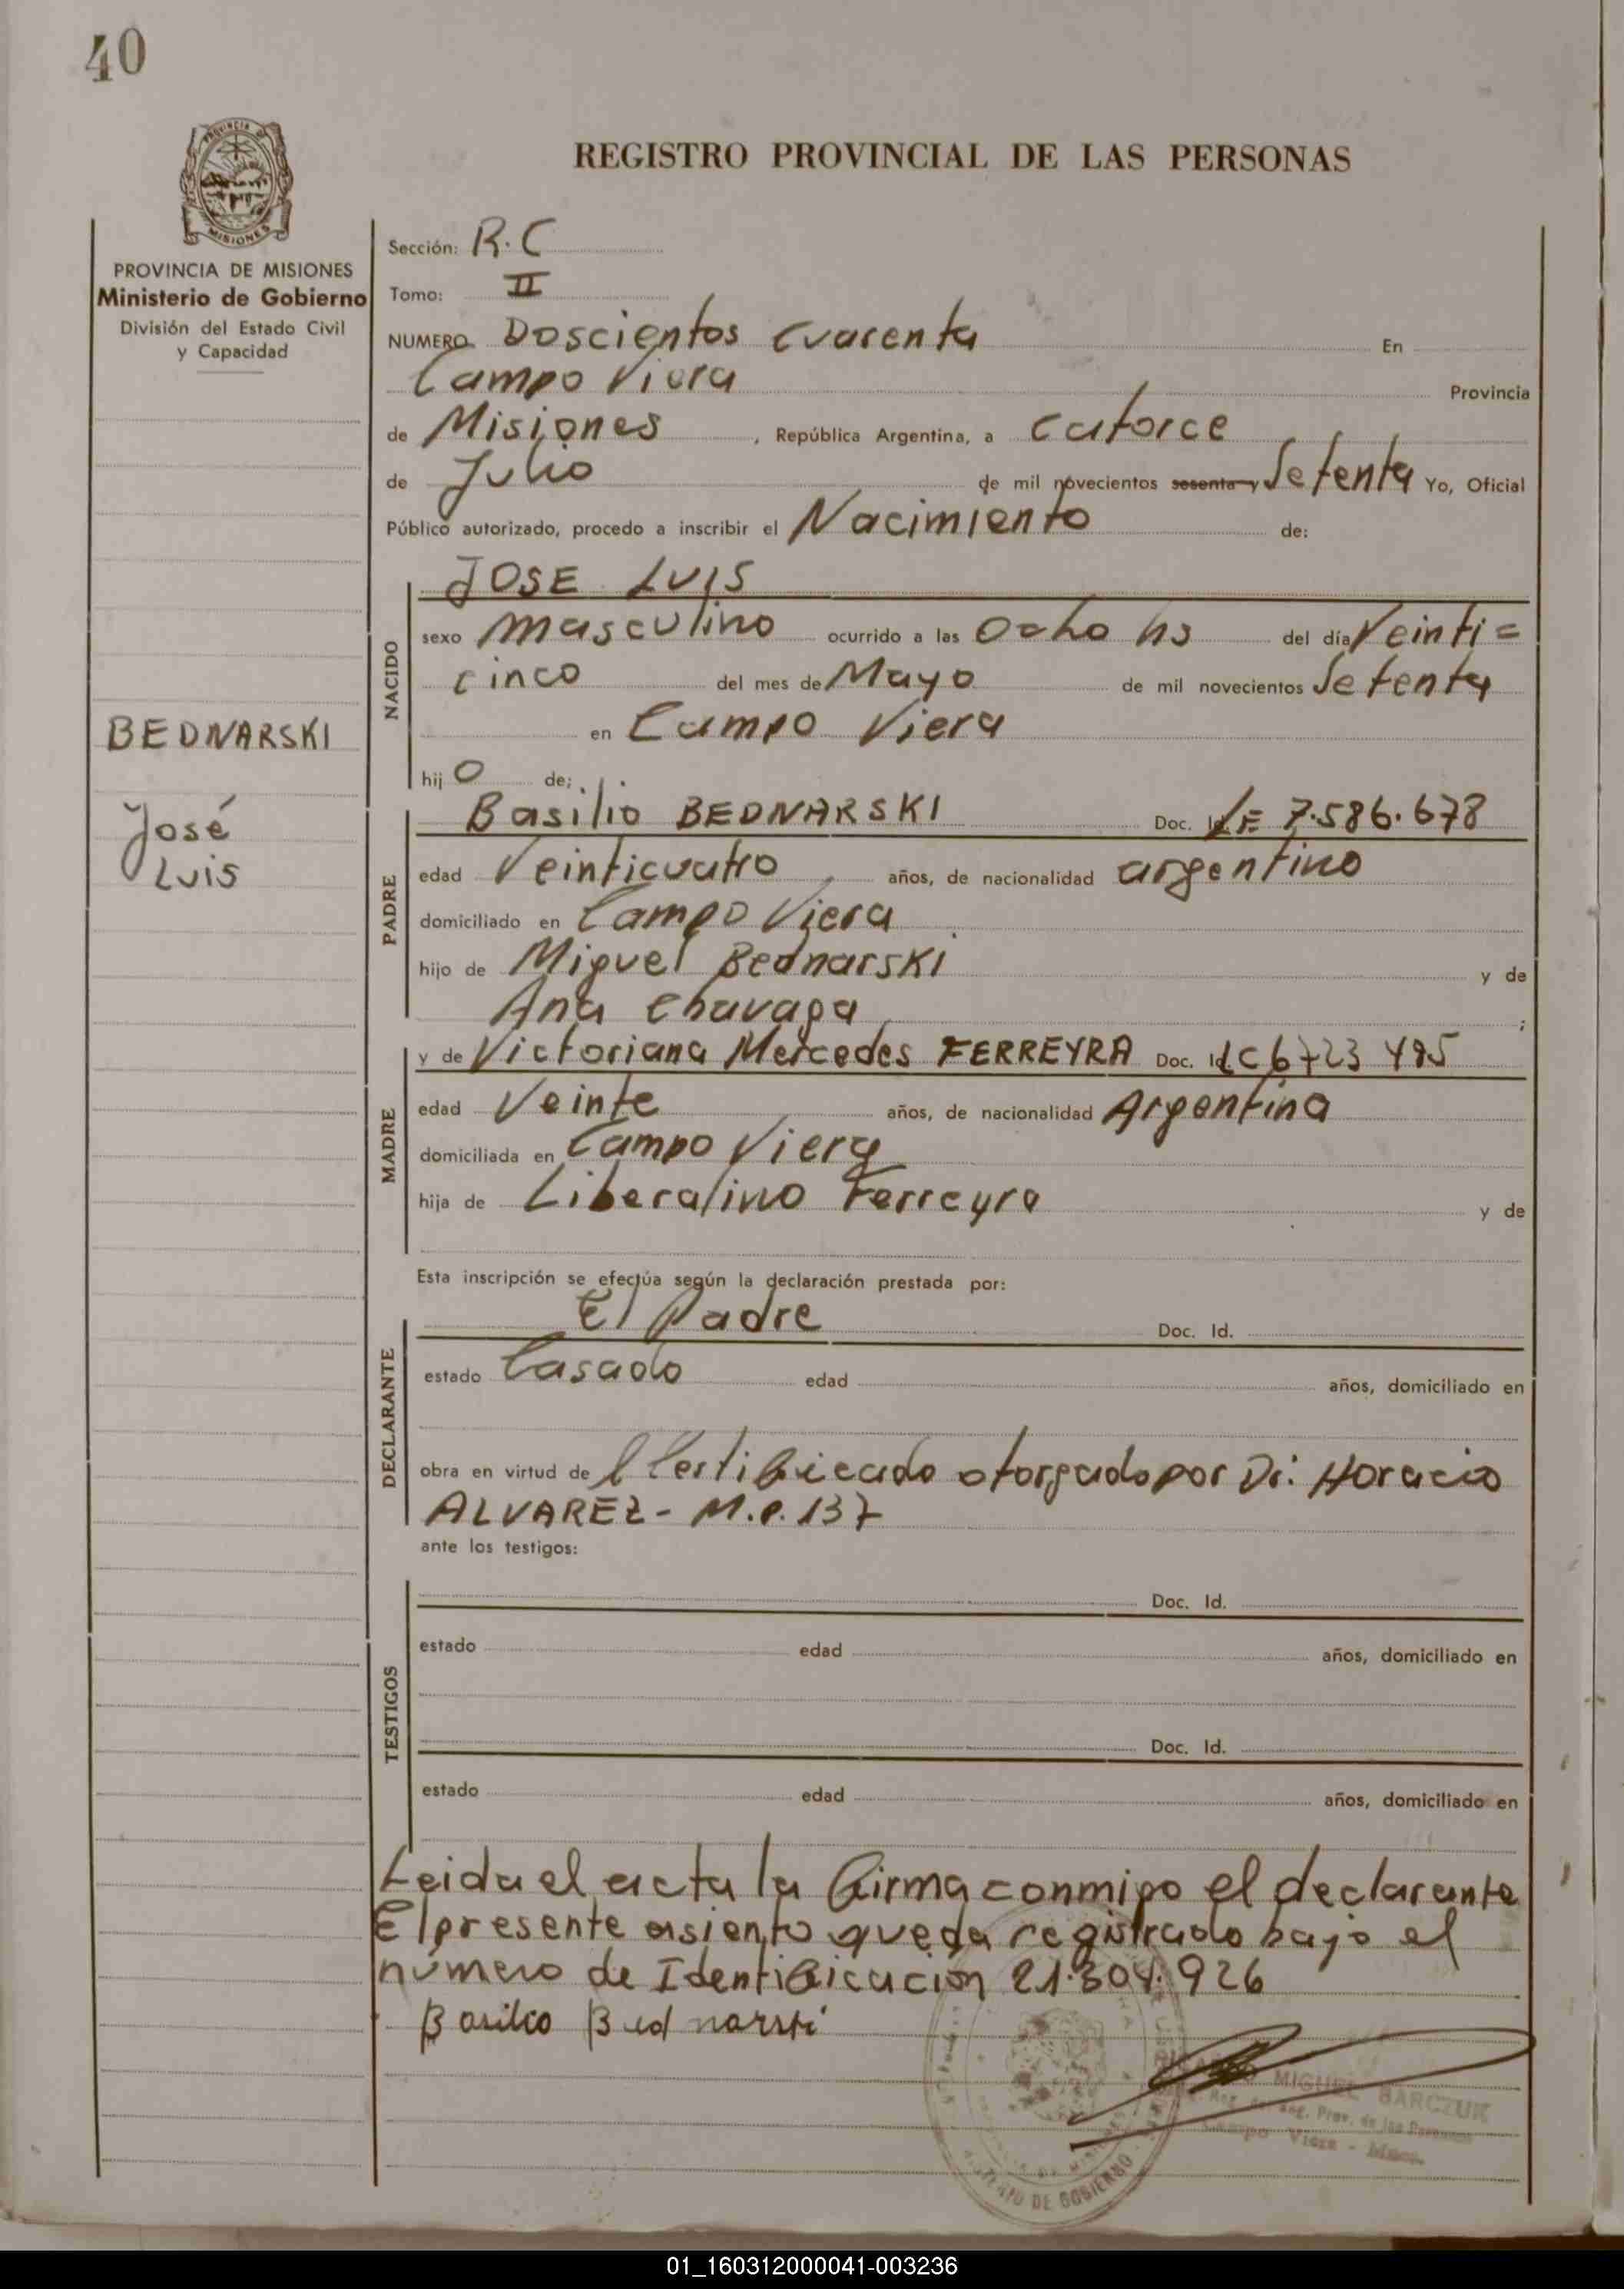 40
PROVINCIA DE
MISIONES
PROVINCIA DE MISIONES
Ministerio de Gobierno
División del Estado Civil
y Capacidad
BEDNARSKI
José
Luis
REGISTRO PROVINCIAL DE LAS PERSONAS
Sección: R.C
Tomo: II
NUMERO Doscientos Cuarenta En
Campo Viera Provincia
de Misiones, República Argentina, a catorce
de Julio de mil novecientos sesenta y Setenta Yo, Oficial
Público autorizado, procedo a inscribir el Nacimiento de:
NACIDO
JOSE LUIS
sexo masculino ocurrido a las Ocho hs del día Veinti=
cinco del mes de Mayo de mil novecientos Setenta
en Campo Viera
hijo de:
PADRE
Basilio BEDNARSKI Doc. LE 7.586.678
edad Veinticuatro años, de nacionalidad argentino
domiciliado en Campo Viera
hijo de Miguel Bednarski y de
Ana Chavaga ;
MADRE
y de Victoriana Mercedes FERREYRA Doc. Id. LC 6723 495
edad Veinte años, de nacionalidad Argentina
domiciliada en Campo Viera
hija de Liberalino Ferreyra y de
Esta inscripción se efectúa según la declaración prestada por:
DECLARANTE
El Padre Doc. Id.
estado Casado edad años, domiciliado en
obra en virtud de l Certificado otorgado por Dr. Horacio
ALVAREZ - M.P. 137
ante los testigos:
TESTIGOS
Doc. Id.
estado edad años, domiciliado en
Doc. Id.
estado edad años, domiciliado en
Leida el acta la firma conmigo el declarante
El presente asiento queda registrado bajo el
número de Identificacion 21.304.926
Basilio Bednarski
MIGUEL BARCZUK
Prov. de las Personas
Campo Viera - Mnes.
DE GOBIERNO
01_160312000041-003236